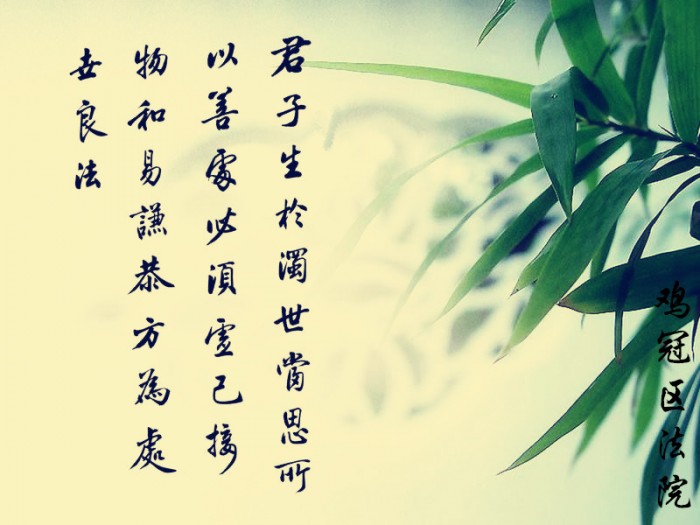 君子生於濁世當思所
以善處必須虛己接
物和易謙恭方為處
世良法
鸡冠区法院